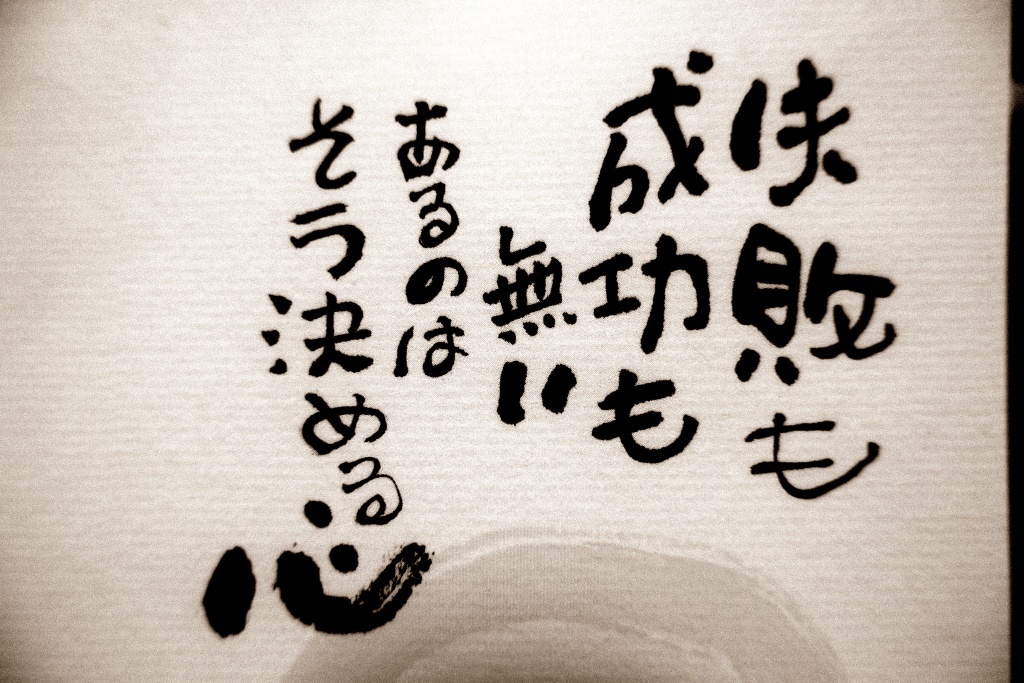 失敗も
成功も
無い
あるのは
そう決める
心